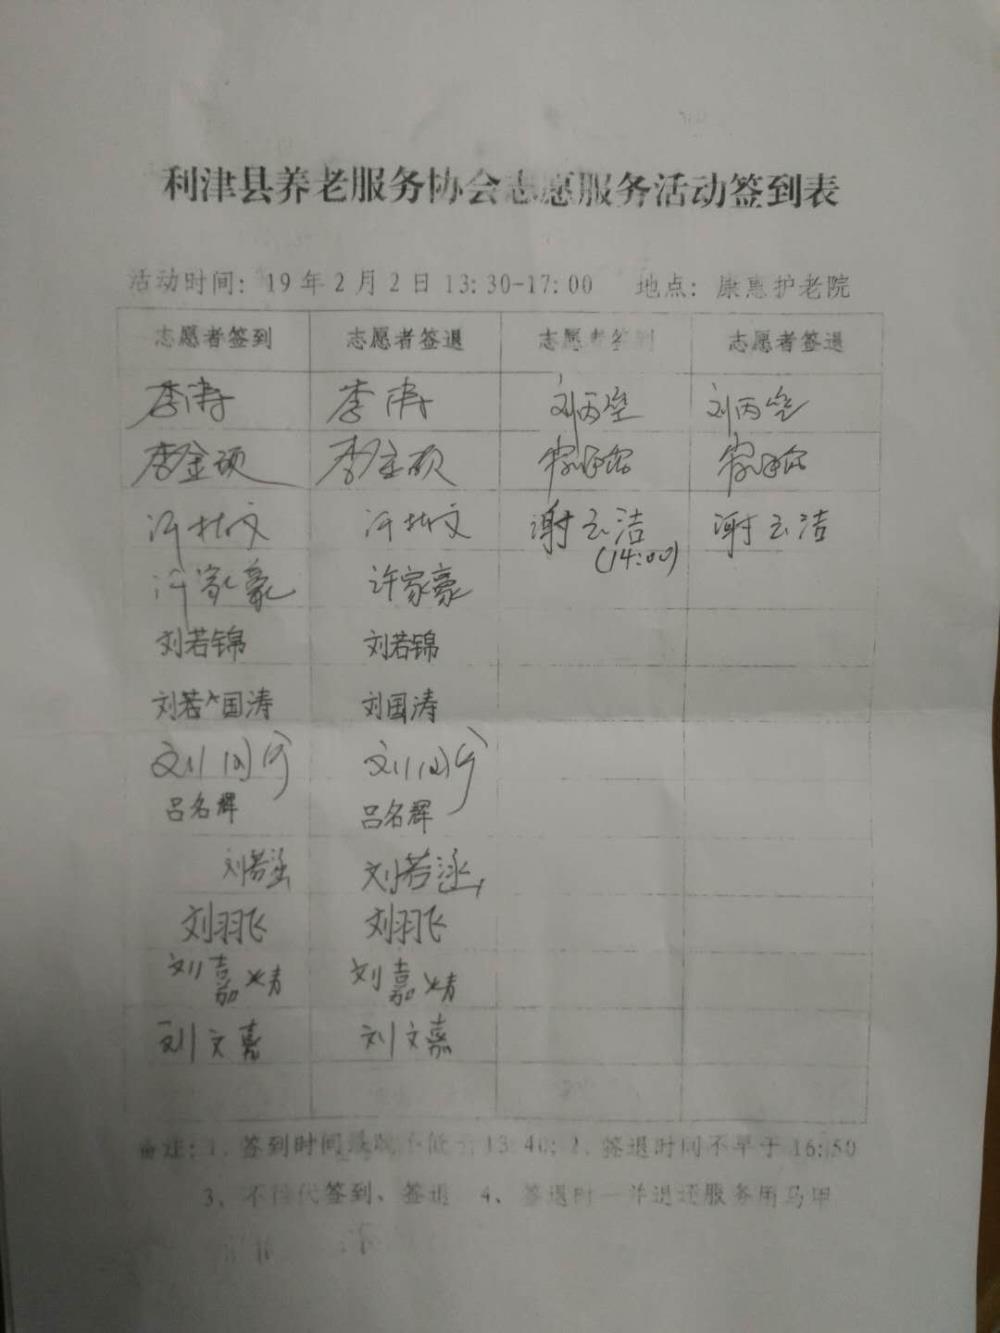 利津县养老服务协会志愿服务活动签到表
活动时间：19年2月2日13:30-17:00 地点：康惠护老院
志愿者签到 志愿者签退 志愿者签到 志愿者签退
李涛 李涛 刘丙莹 刘丙莹
李金硕 李金硕
谢云洁 谢云洁
(14:00)
许家豪 许家豪
刘若锦 刘若锦
刘若国涛 刘国涛
吕名辉 吕名辉
刘若涵 刘若涵
刘羽飞 刘羽飞
刘嘉婧 刘嘉婧
刘文嘉 刘文嘉
备注：1、签到时间最晚不低于13:40；2、签退时间不早于16:50
3、不得代签到、签退 4、签退时一并退还服务用马甲